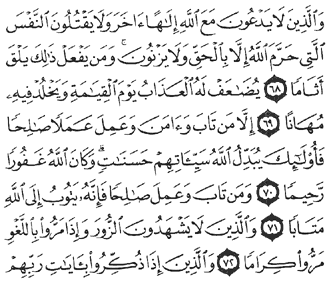 وَالَّذِينَ لَا يَدْعُونَ مَعَ اللَّهِ إِلَٰهًا ءَاخَرَ وَلَا يَقْتُلُونَ النَّفْسَ
الَّتِي حَرَّمَ اللَّهُ إِلَّا بِالْحَقِّ وَلَا يَزْنُونَ ۚ وَمَن يَفْعَلْ ذَٰلِكَ يَلْقَ
أَثَامًا ٦٨ يُضَٰعَفْ لَهُ الْعَذَابُ يَوْمَ الْقِيَٰمَةِ وَيَخْلُدْ فِيهِ
مُهَانًا ٦٩ إِلَّا مَن تَابَ وَءَامَنَ وَعَمِلَ عَمَلًا صَٰلِحًا
فَأُو۟لَٰٓئِكَ يُبَدِّلُ اللَّهُ سَيِّـَٔاتِهِمْ حَسَنَٰتٍ ۗ وَكَانَ اللَّهُ غَفُورًا
رَّحِيمًا ٧٠ وَمَن تَابَ وَعَمِلَ صَٰلِحًا فَإِنَّهُ يَتُوبُ إِلَى اللَّهِ
مَتَابًا ٧١ وَالَّذِينَ لَا يَشْهَدُونَ الزُّورَ وَإِذَا مَرُّوا بِاللَّغْوِ
مَرُّوا كِرَامًا ٧٢ وَالَّذِينَ إِذَا ذُكِّرُوا بِـَٔايَٰتِ رَبِّهِمْ